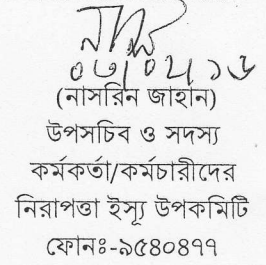 ০৩/০৮/১৬
(নাসরিন জাহান)
উপসচিব ও সদস্য
কর্মকর্তা/কর্মচারীদের
নিরাপত্তা ইস্যূ উপকমিটি
ফোনঃ-৯৫৪০৪৭৭